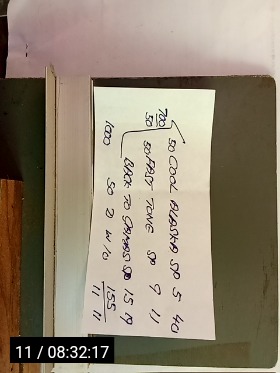 700
50
50 COOL BLASTER SP 5 40
50 FAST TONE SP 9 11
BACK TO GAMES SP 15 19
1000 50 2 W/O
155
11 11
11 / 08:32:17